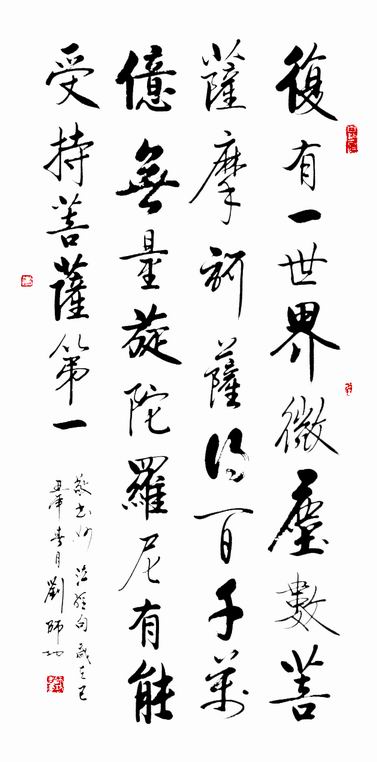 復有一世界微塵數菩
薩摩訶薩得百千萬
億無量旋陀羅尼有能
受持菩薩第一
敬书妙法經句歲
春月劉師